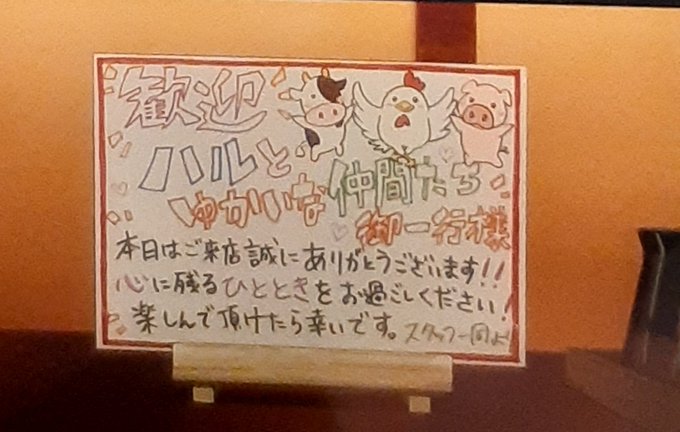 歓迎
ハルと
ゆかいな仲間たち
御一行様
本日はご来店誠にありがとうございます!!
心に残るひとときをお過ごしください!
楽しんで頂けたら幸いです。スタッフ一同より